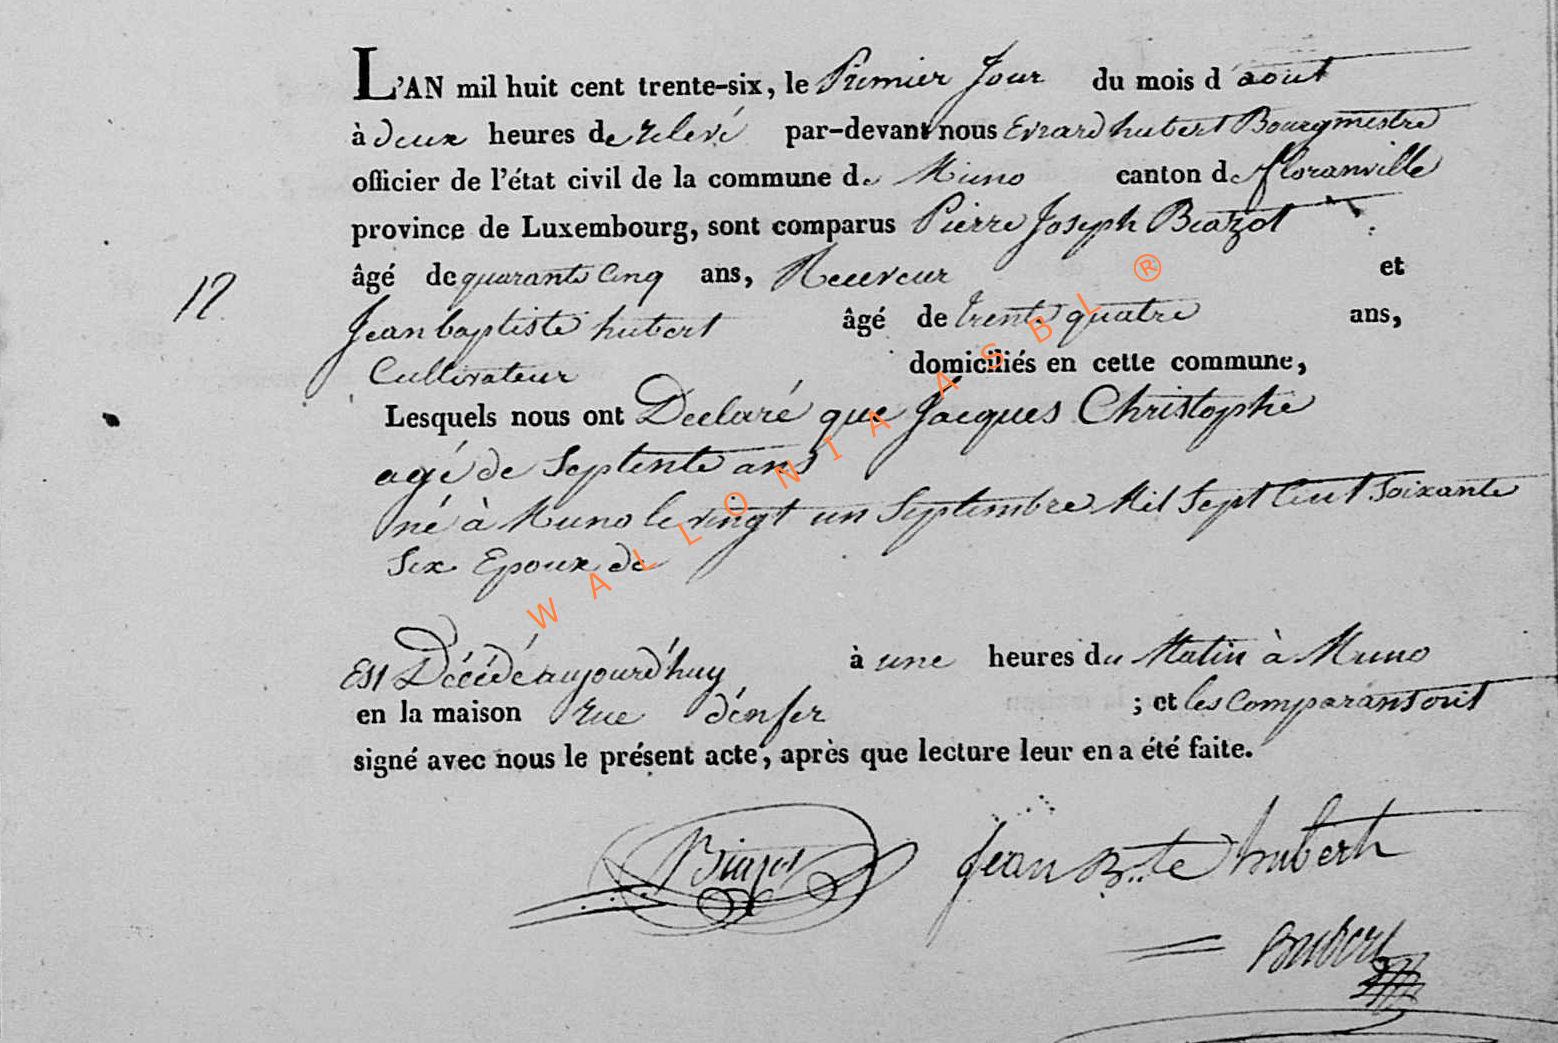 L'AN mil huit cent trente-six, le Premier Jour du mois d'aout
à deux heures de relevé par-devant nous Evrard hubert Bourgmestre
officier de l'état civil de la commune de Muno canton de floranville
province de Luxembourg, sont comparus Pierre Joseph Biazot
âgé de quarante Cinq ans, Receveur et
12
Jean baptiste hubert âgé de trente quatre ans,
Cultivateur domiciliés en cette commune,
Lesquels nous ont Declaré que Jacques Christophe
agé de Septente ans
né à Muno le vingt un Septembre Mil Sept Cent Soixante
Six Epoux de
Est Décédé aujourd'huy à une heures du Matin à Muno
en la maison rue d'enfer ; et les comparans ont
signé avec nous le présent acte, après que lecture leur en a été faite.
Biazot Jean B..te hubert
WALLONIA ASBL ®